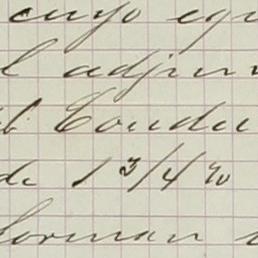 cuyo equ
l adjun
Condu
de 1 3/4 %
forman